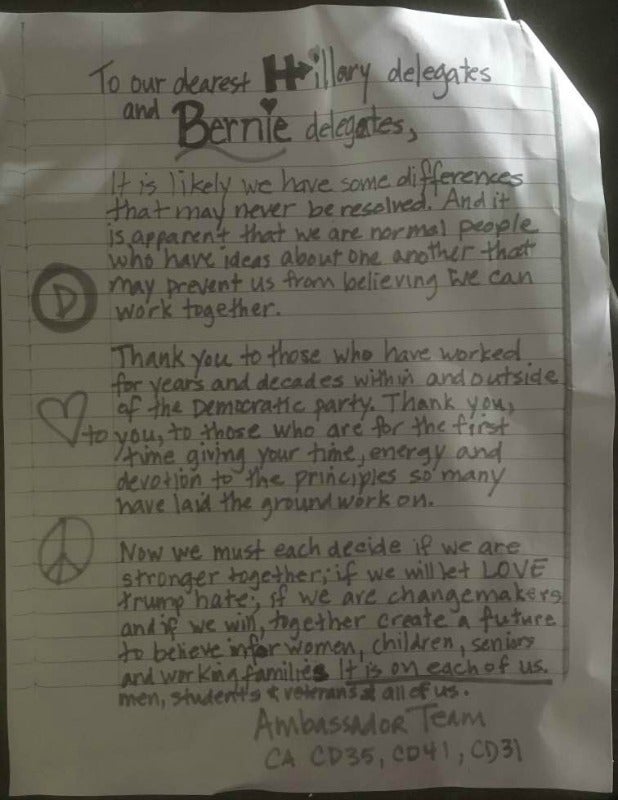 To our dearest Hillary delegates
and Bernie delegates,
It is likely we have some differences
that may never be resolved. And it
is apparent that we are normal people
who have ideas about one another that
may prevent us from believing we can
D
work together.
Thank you to those who have worked
for years and decades within and outside
of the Democratic party. Thank you,
to you, to those who are for the first
time giving your time, energy and
devotion to the principles so many
have laid the groundwork on.
Now we must each decide if we are
stronger together; if we will let LOVE
trump hate; if we are changemakers
and if we will, together create a future
to believe in for women, children, seniors
and working families It is on each of us.
men, students & veterans & all of us.
Ambassador Team
CA CD35, CD41, CD31